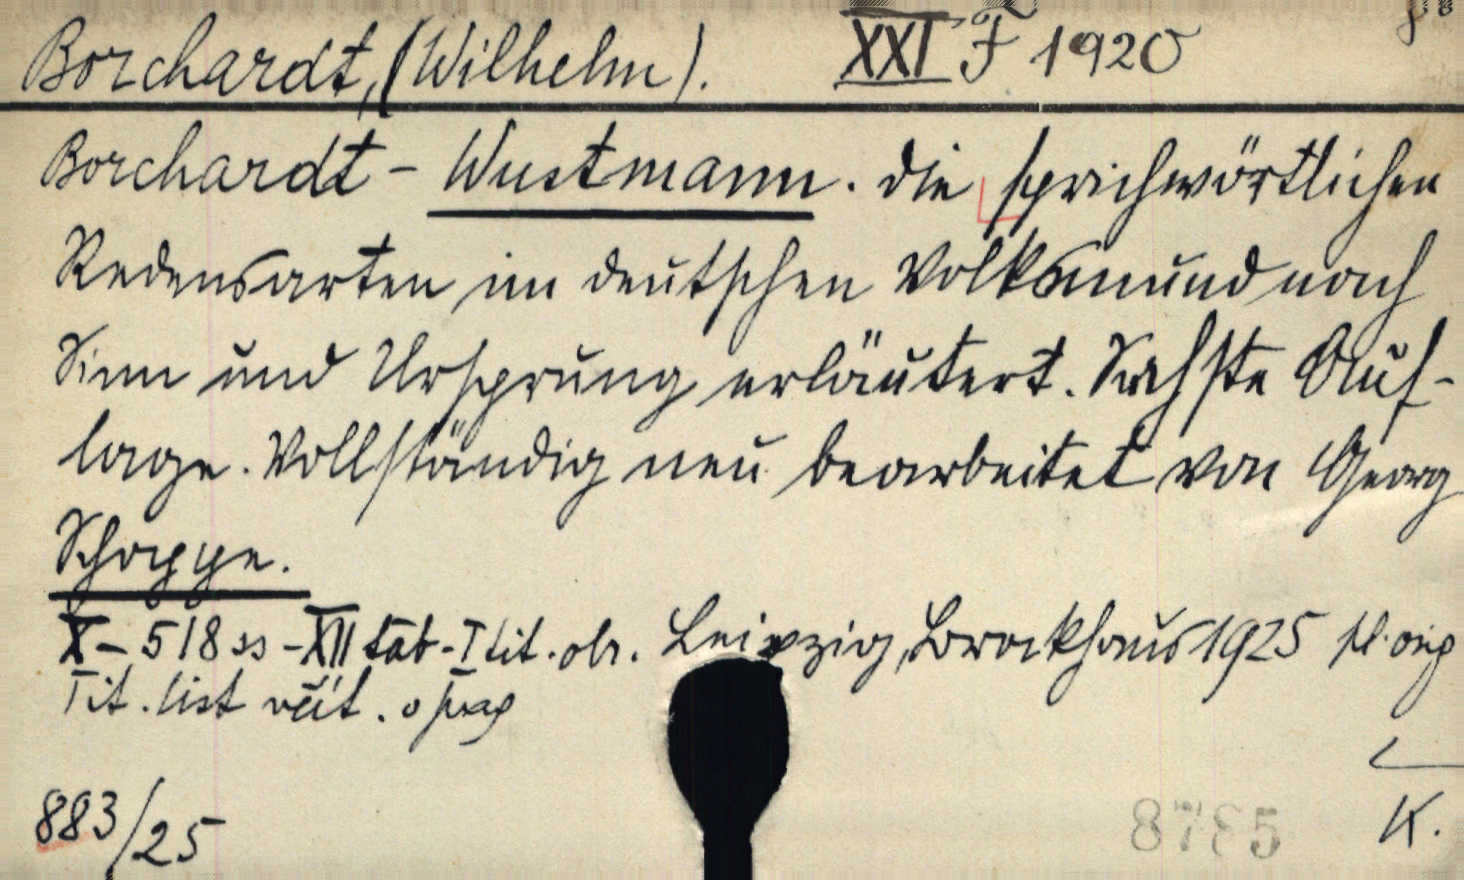 Borchardt, (Wilhelm). XXI F 1920
Borchardt - Wustmann. Die sprichwörtlichen
Redensarten im deutschen Volksmund nach
Sinn und Ursprung erläutert. Sechste Auf-
lage. Vollständig neu bearbeitet von Georg
Schoppe.
X - 518 ss - XII tab - I tit. obr. Leipzig, Brockhaus 1925
Tit. list
883/25
K.